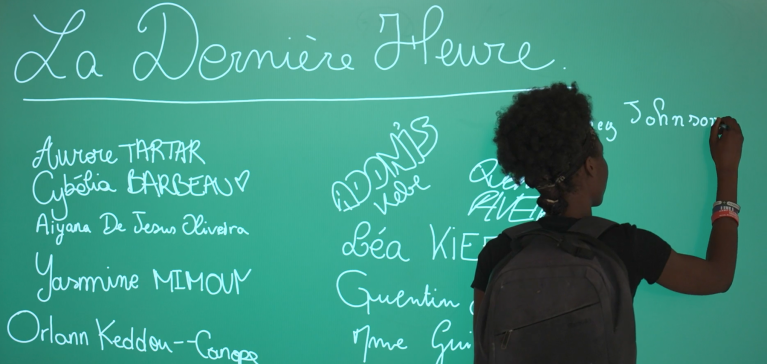 La Dernière Heure.
Aurore TARTAR
Cybélia BARBEAU
Aiyana De Jesus Oliveira
Yasmine MIMOUN
Orlann Keddou--Canope
ADONIS
Kebe
Léa
Quentin
Mme
Johnson